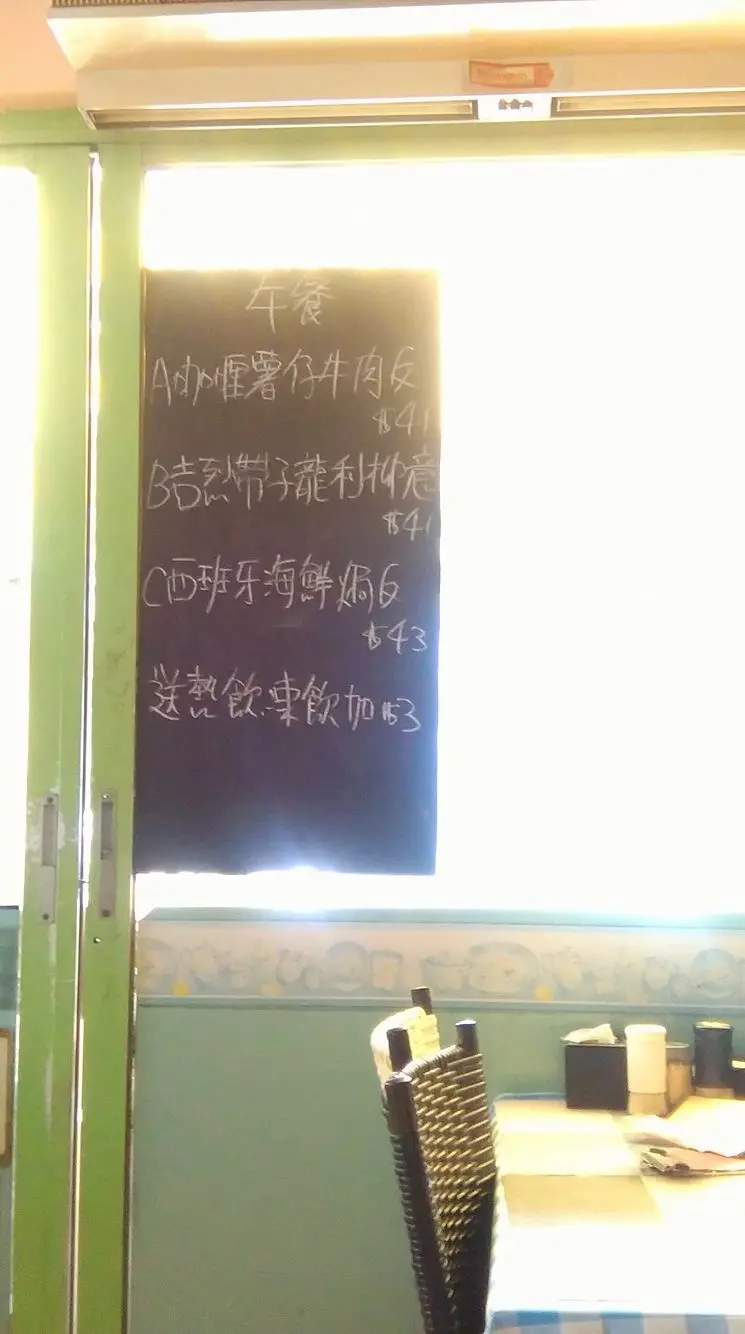 午餐
A咖喱薯仔牛肉反
$41
B吉烈帶子龍利柳意
$41
C西班牙海鮮焗反
$43
送熱飲.凍飲加$3